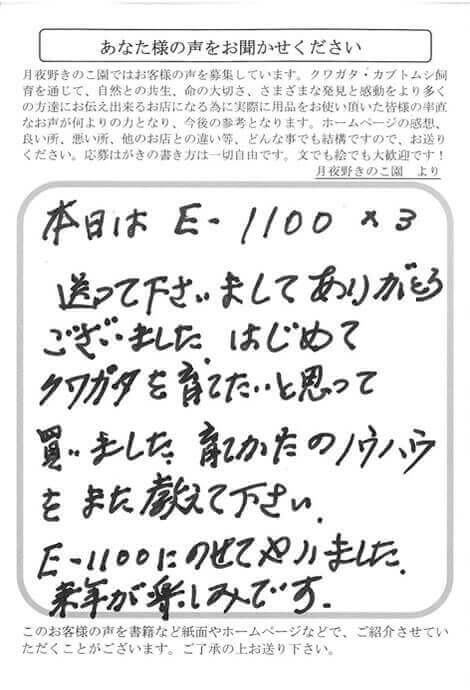 あなた様の声をお聞かせください
月夜野きのこ園ではお客様の声を募集しています。クワガタ・カブトムシ飼
育を通じて、自然との共生、命の大切さ、さまざまな発見と感動をより多く
の方達にお伝え出来るお店になる為に実際に用品をお使い頂いた皆様の率直
なお声が何よりの力となり、今後の参考となります。ホームページの感想、
良い所、悪い所、他のお店との違い等、どんな事でも結構ですので、お送り
ください。応募はがきの書き方は一切自由です。文でも絵でも大歓迎です！
月夜野きのこ園　より
本日は E-1100 ×3
送って下さいましてありがとう
ございました。はじめて
クワガタを育てたいと思って
買いました。育てかたのノウハウ
をまた教えて下さい。
E-1100にのせてやりました。
来年が楽しみです。
このお客様の声を書籍など紙面やホームページなどで、ご紹介させてい
ただくことがございます。ご了承の上お送り下さい。